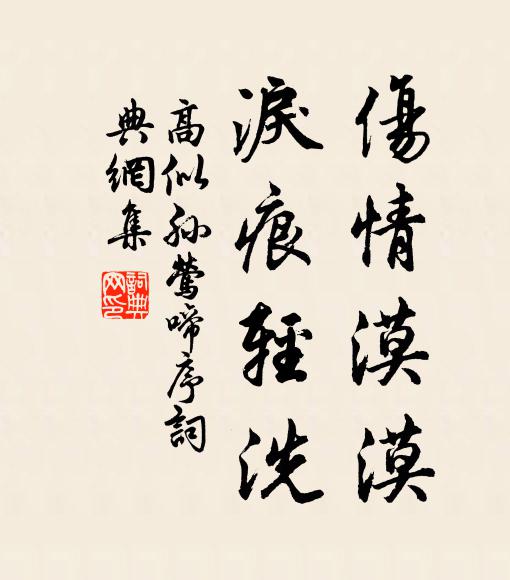 傷情漠漠
淚痕輕洗
高似孙鶯啼序詞
典網集
詞典
网印